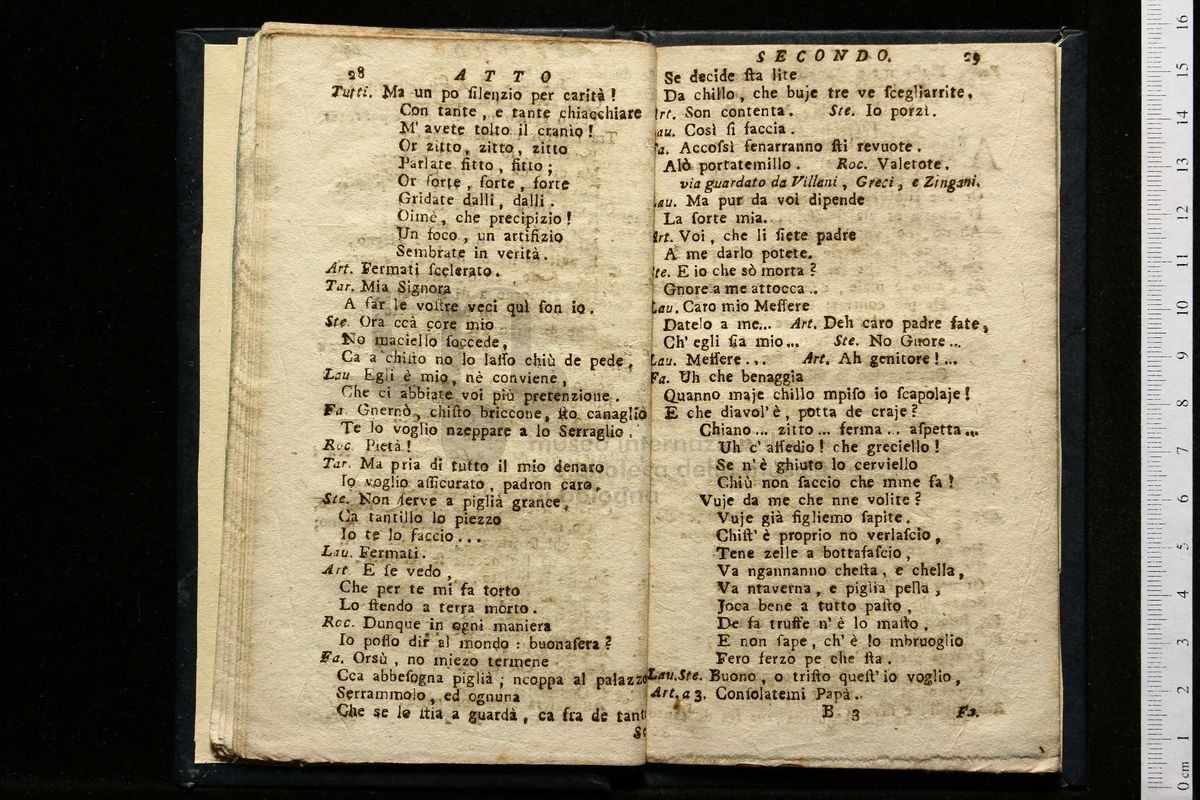 28 ATTO
Tutti. Ma un po ſilenzio per carità!
Con tante, e tante chiacchiare
M' avete tolto il cranio!
Or zitto, zitto, zitto
Parlate fitto, fitto;
Or forte, forte, forte
Gridate dalli, dalli.
Oimè, che precipizio!
Un foco, un artifizio
Sembrate in verità.
Art. Fermati ſcelerato.
Tar. Mia Signora
A far le voſtre veci quì ſon io.
Ste. Ora ccà core mio
No maciello ſoccede,
Ca a chiſto no lo laſſo chiù de pede,
Lau. Egli è mio, nè conviene,
Che ci abbiate voi più pretenzione.
Fa. Gnernò, chiſto briccone, ſto canaglio
Te lo voglio nzeppare a lo Serraglio.
Roc. Pietà!
Tar. Ma pria di tutto il mio denaro
Io voglio aſſicurato, padron caro.
Ste. Non ſerve a piglià grance,
Ca tantillo lo piezzo
Io te lo faccio...
Lau. Fermati.
Art. E ſe vedo,
Che per te mi fa torto
Lo ſtendo a terra morto.
Roc. Dunque in ogni maniera
Io poſſo dir al mondo: buonaſera?
Fa. Orsù, no miezo termene
Cca abbeſogna piglià; ncoppa al palazzo
Serrammolo, ed ognuna
Che ſe lo ſtia a guardà, ca fra de tant
SECONDO. 29
Se decide ſta lite
Da chillo, che buje tre ve ſcegliarrite.
Art. Son contenta. Ste. Io porzì.
Lau. Così ſi faccia.
Fa. Accoſsì ſenarranno ſti revuote.
Alò portatemillo. Roc. Valetote.
via guardato da Villani, Greci, e Zingani.
Lau. Ma pur da voi dipende
La ſorte mia.
Art. Voi, che li ſiete padre
A me darlo potete.
Ste. E io che sò morta?
Gnore a me attocca..
Lau. Caro mio Meſſere
Datelo a me... Art. Deh caro padre fate,
Ch' egli ſia mio... Ste. No Gnore...
Lau. Meſſere... Art. Ah genitore!...
Fa. Uh che benaggia
Quanno maje chillo mpiſo io ſcapolaje!
E che diavol' è, potta de craje?
Chiano... zitto... ferma... aſpetta...
Uh c' aſſedio! che greciello!
Se n' è ghiuto lo cerviello
Chiù non faccio che mme fa!
Vuje da me che nne volite?
Vuje già figliemo ſapite.
Chiſt' è proprio no verlaſcio,
Tene zelle a bottafaſcio,
Va ngannanno cheſta, e chella,
Va ntaverna, e piglia pella,
Joca bene a tutto paſto,
De fa truffe n' è lo maſto,
E non ſape, ch' è lo mbruoglio
Fero ferzo pe che ſta.
Lau.Ste. Buono, o triſto queſt' io voglio,
Art. a 3. Conſolatemi Papà.
E 3 Fa.